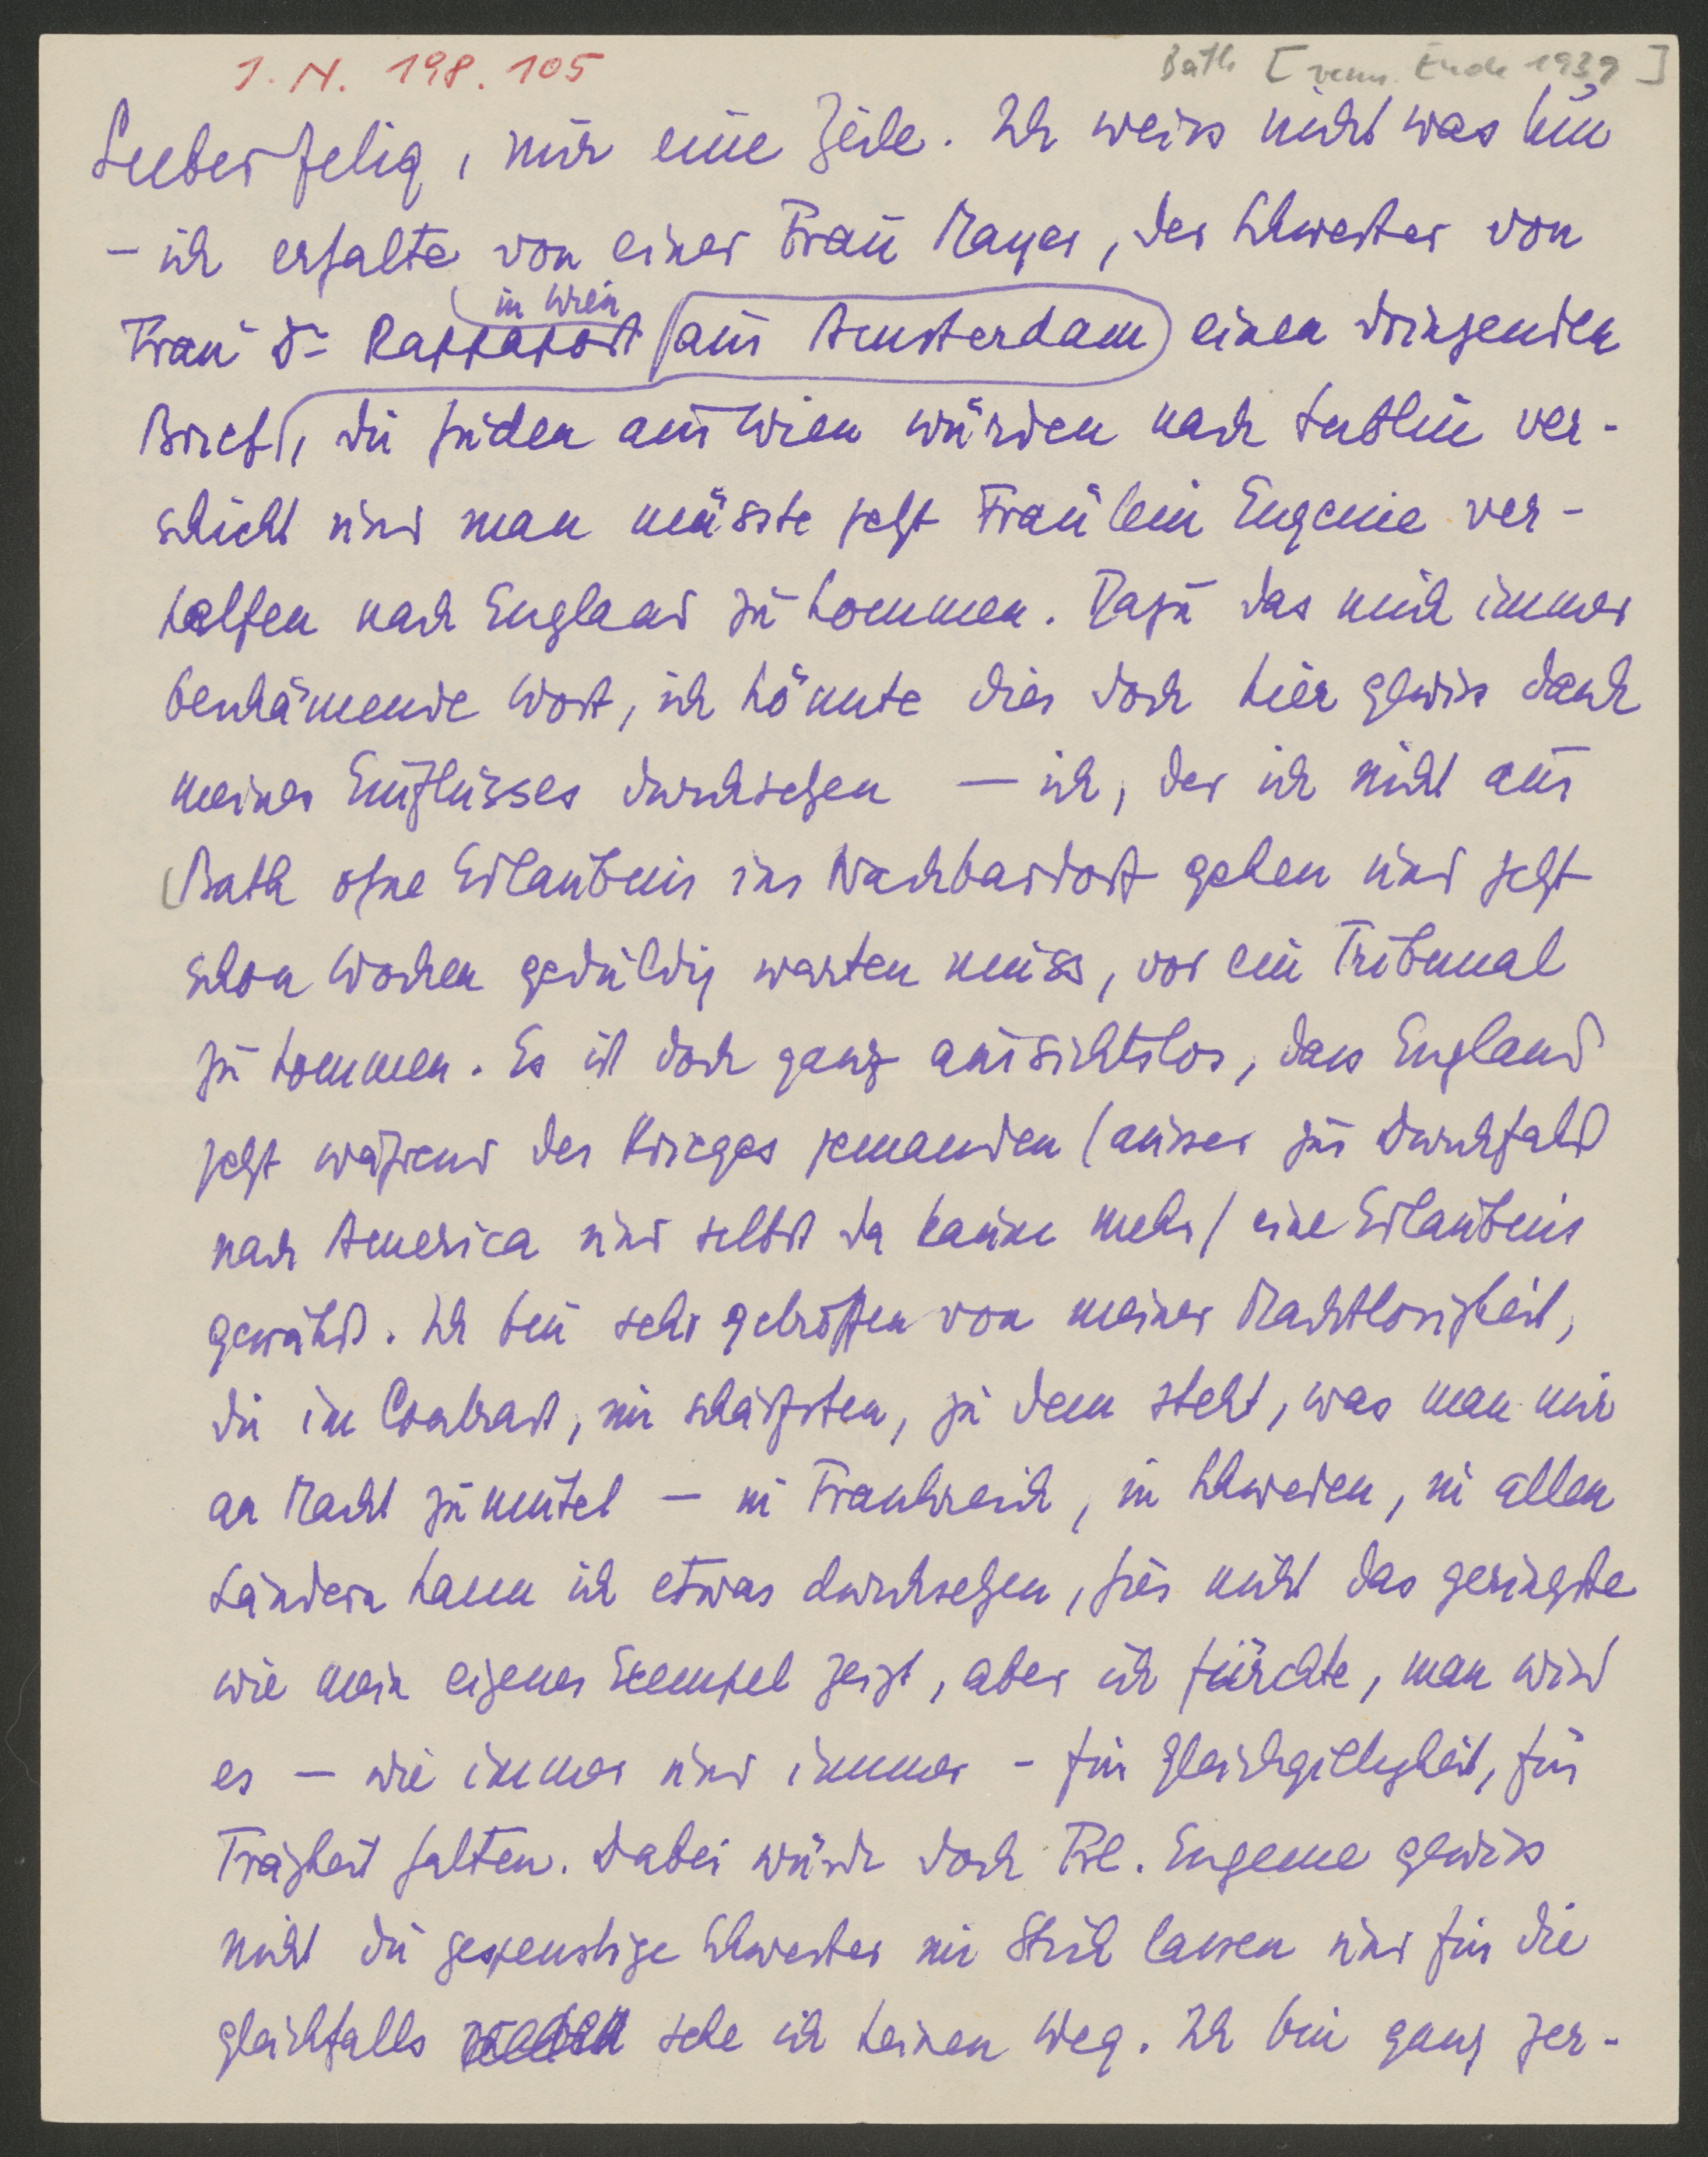 I. N. 198.105
Bath [verm. Ende 1939]
Lieber Felix, nur eine Zeile. Ich weiss nicht was tun
– ich erhalte von einer Frau Mayer, der Schwester von
in Wien
Frau Dr Rappaport (aus Amsterdam) einen dringenden
Brief, die Juden aus Wien würden nach Lublin ver-
schickt und man müsste jetzt Fräulein Eugenie ver-
helfen nach England zu kommen. Dazu das mich immer
beschämende Wort, ich könnte dies doch hier gewiss dank
meines Einflusses durchsetzen – ich, der ich nicht aus
Bath ohne Erlaubnis ins Nachbardorf gehen und jetzt
schon Wochen geduldig warten muss, vor ein Tribunal
zu kommen. Es ist doch ganz aussichtslos, dass England
jetzt während des Krieges jemanden (ausser zur Durchfahrt
nach America und selbst da kaum mehr) eine Erlaubnis
gewährt. Ich bin sehr getroffen von meiner Machtlosigkeit,
die im Contrast, im schärfsten, zu dem steht, was man mir
an Macht zumutet – in Frankreich, in Schweden, in allen
Ländern kann ich etwas durchsetzen, hier nicht das geringste
wie mein eigenes Exempel zeigt, aber ich fürchte, man wird
es – wie immer und immer – für Gleichgiltigkeit, für
Trägheit halten. Dabei würde doch Frl. Eugenie gewiss
nicht die gespenstige Schwester im Stich lassen und für die
gleichfalls sehe ich keinen Weg. Ich bin ganz zer-